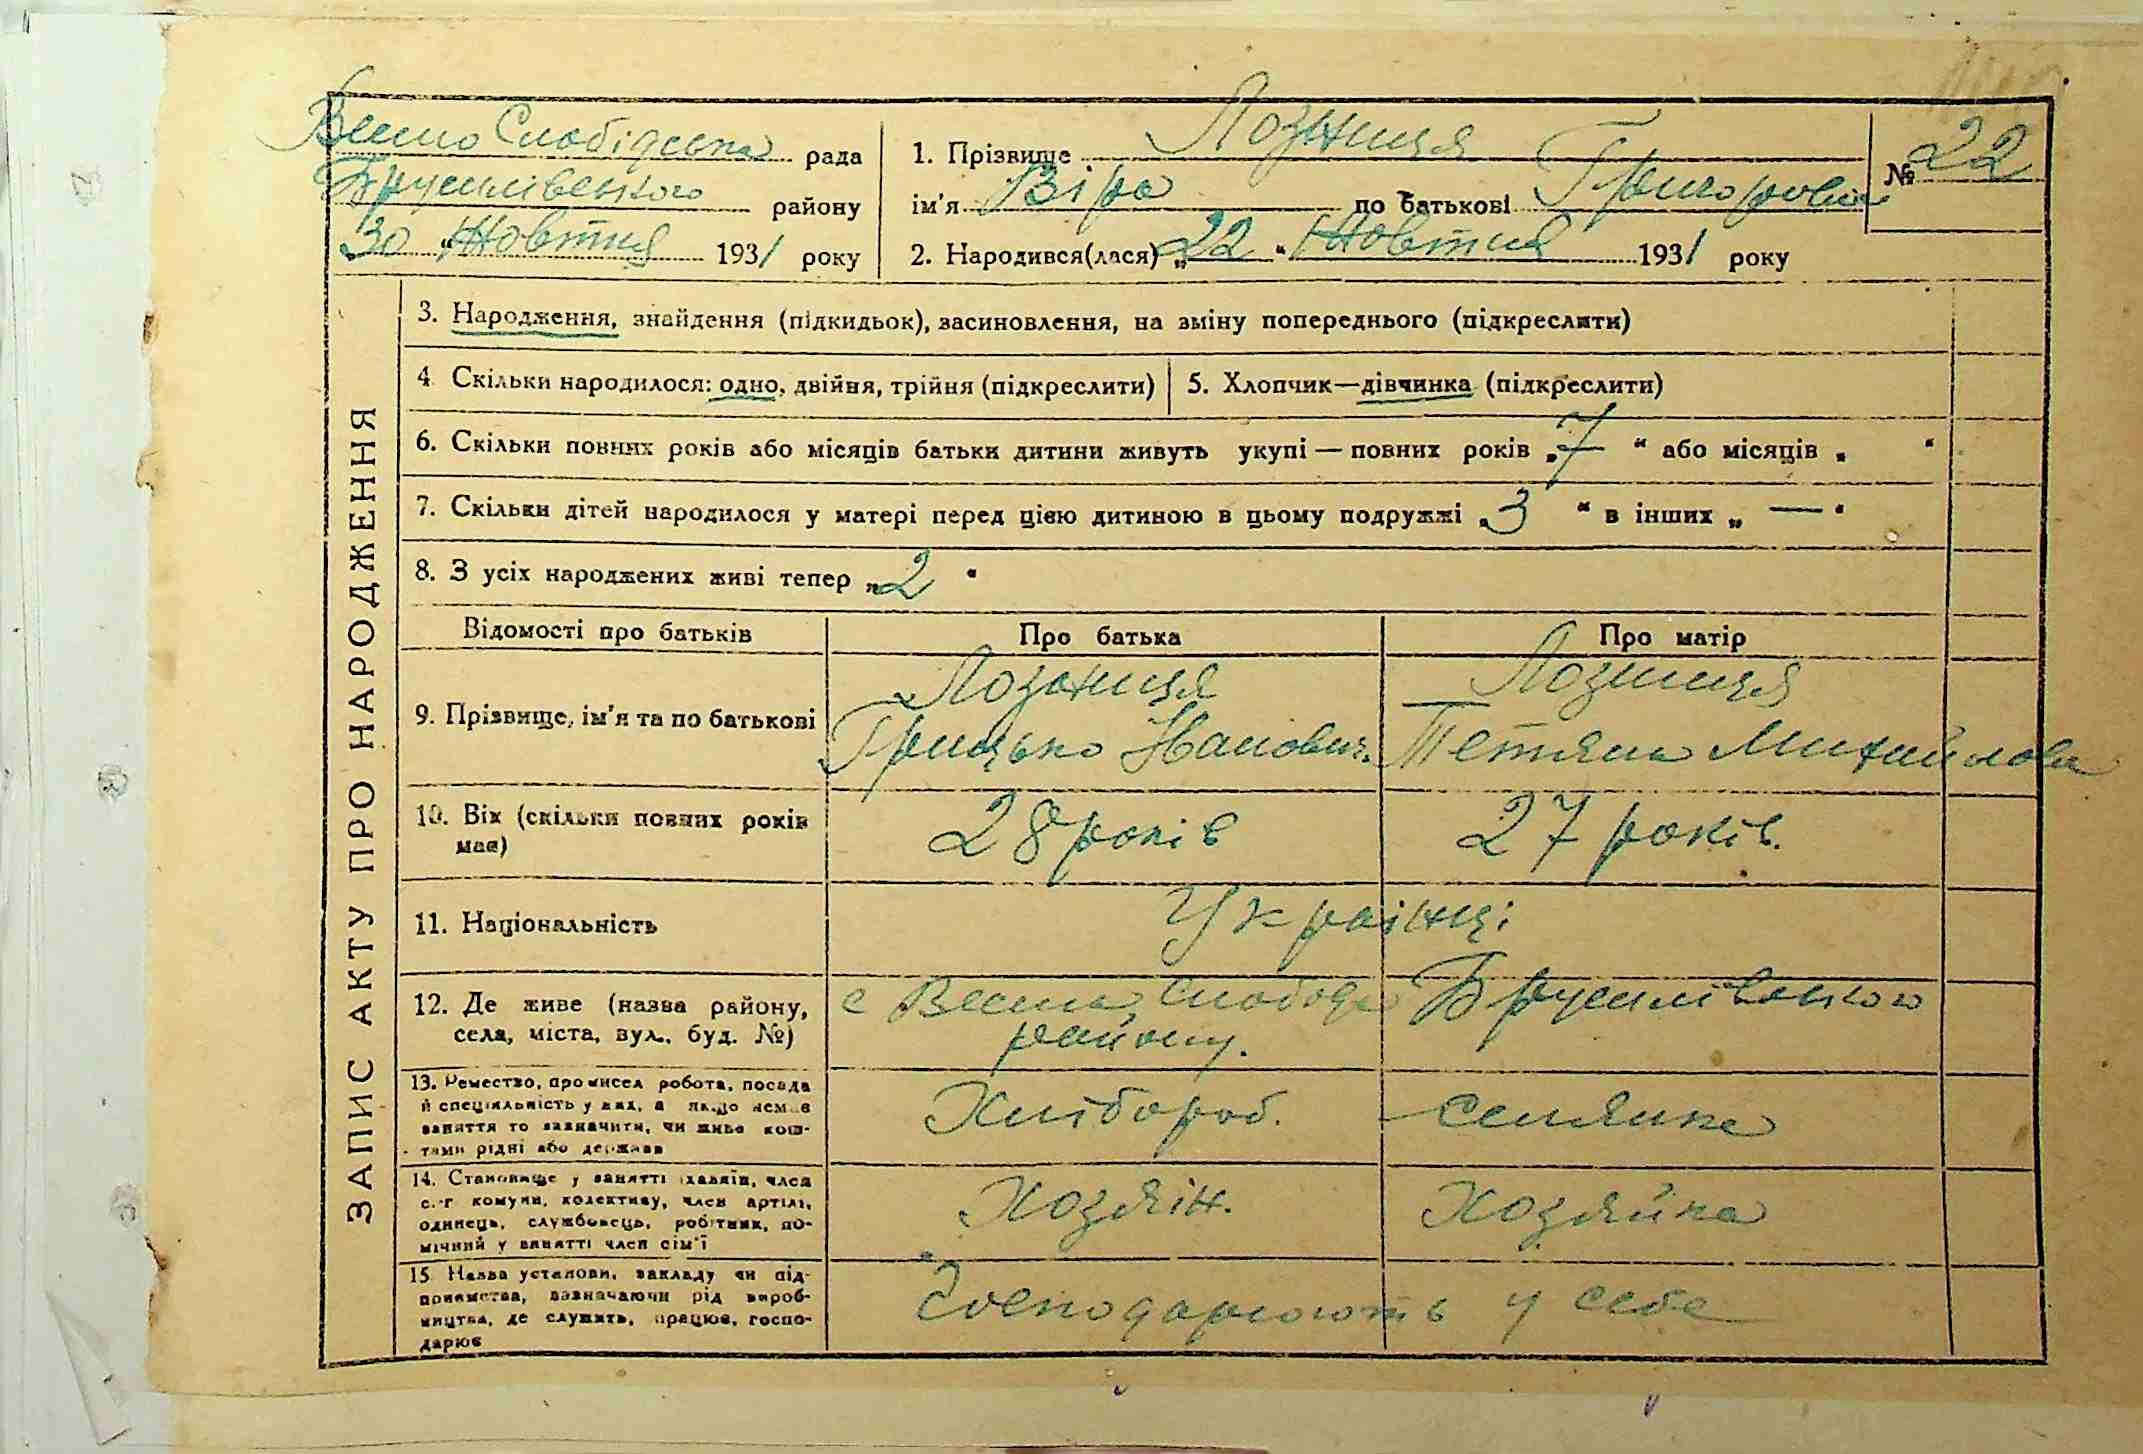 Весело Слобідська рада
Брусилівського району
30 „Жовтня 1931 року
1. Прізвище Лозниця
ім'я Віра по батькові Григоровна
2. Народився(лася) „22“ Жовтня 1931 року
№ 22
ЗАПИС АКТУ ПРО НАРОДЖЕННЯ
3. Народження, знайдення (підкидьок), засиновлення, на зміну попереднього (підкреслити)
4. Скільки народилося: одно, двійня, трійня (підкреслити)
5. Хлопчик—дівчинка (підкреслити)
6. Скільки повних років або місяців батьки дитини живуть укупі — повних років „7“ або місяців „ “
7. Скільки дітей народилося у матері перед цією дитиною в цьому подружжі „3“ в інших „—“
8. З усіх народжених живі тепер „2“
Відомості про батьків Про батька Про матір
9. Прізвище, ім'я та по батькові
Лозниця
Грицько Іванович.
Лозниця
Тетяна Михайлова
10. Вік (скільки повних років
має)
28 років
27 років.
11. Національність
Українці
12. Де живе (назва району,
села, міста, вул., буд. №)
с Весела Слобода Брусилівського
району.
13. Ремество, промисел робота, посада
й спеціяльність у них, а якщо немає
заняття то зазначити, чи живе кош-
тами рідні або держави
Хлібороб.
селянка
14. Становище у занятті хазяїн, член
с.-г комуни, колективу, член артілі,
одинець, службовець, робітник, по-
мічний у занятті член сім'ї
Хозяін.
Хозяйка
15. Назва установи, закладу чи під-
приємства, зазначаючи рід вироб-
ництва, де служить, працює, госпо-
дарює
Господарюють у себе